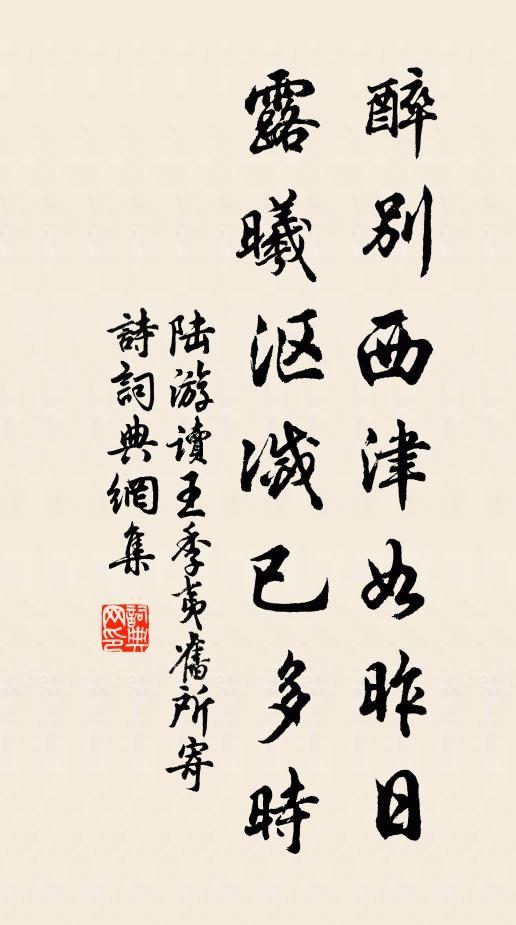 醉別西津如昨日
露曦漚滅已多時
陆游讀王季夷舊所寄
詩詞典網集
詞典网印